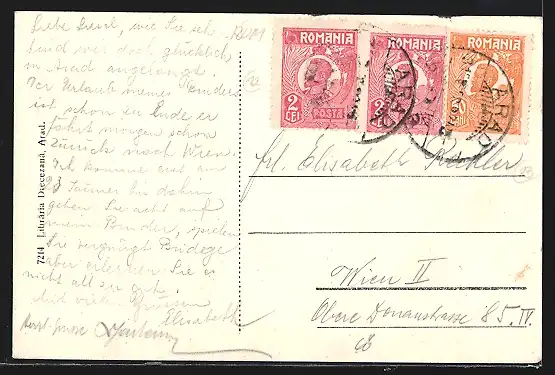 Liebe Liesl, wie Sie seh.
sind wir doch glücklich
in Arad angelangt.
Der Urlaub meines Bruders
ist schon zu Ende er
fährt morgen schon
zurück nach Wien.
Ich komme erst am
23 Jänner bis dahin
geben Sie acht auf
mein Bruder, spielen
Sie vergnügt Bridge
aber erlernen Sie es
nicht all zu gut.
Mit vielen Grüssen
Elisabeth
7214 Librăria Diecezană, Arad.
ROMANIA
2 LEI POSTA
ROMANIA
2
ROMANIA
50
ARAD
ARAD
Frl. Elisabeth
Wien II
Obere Donaustrasse 85. IV.